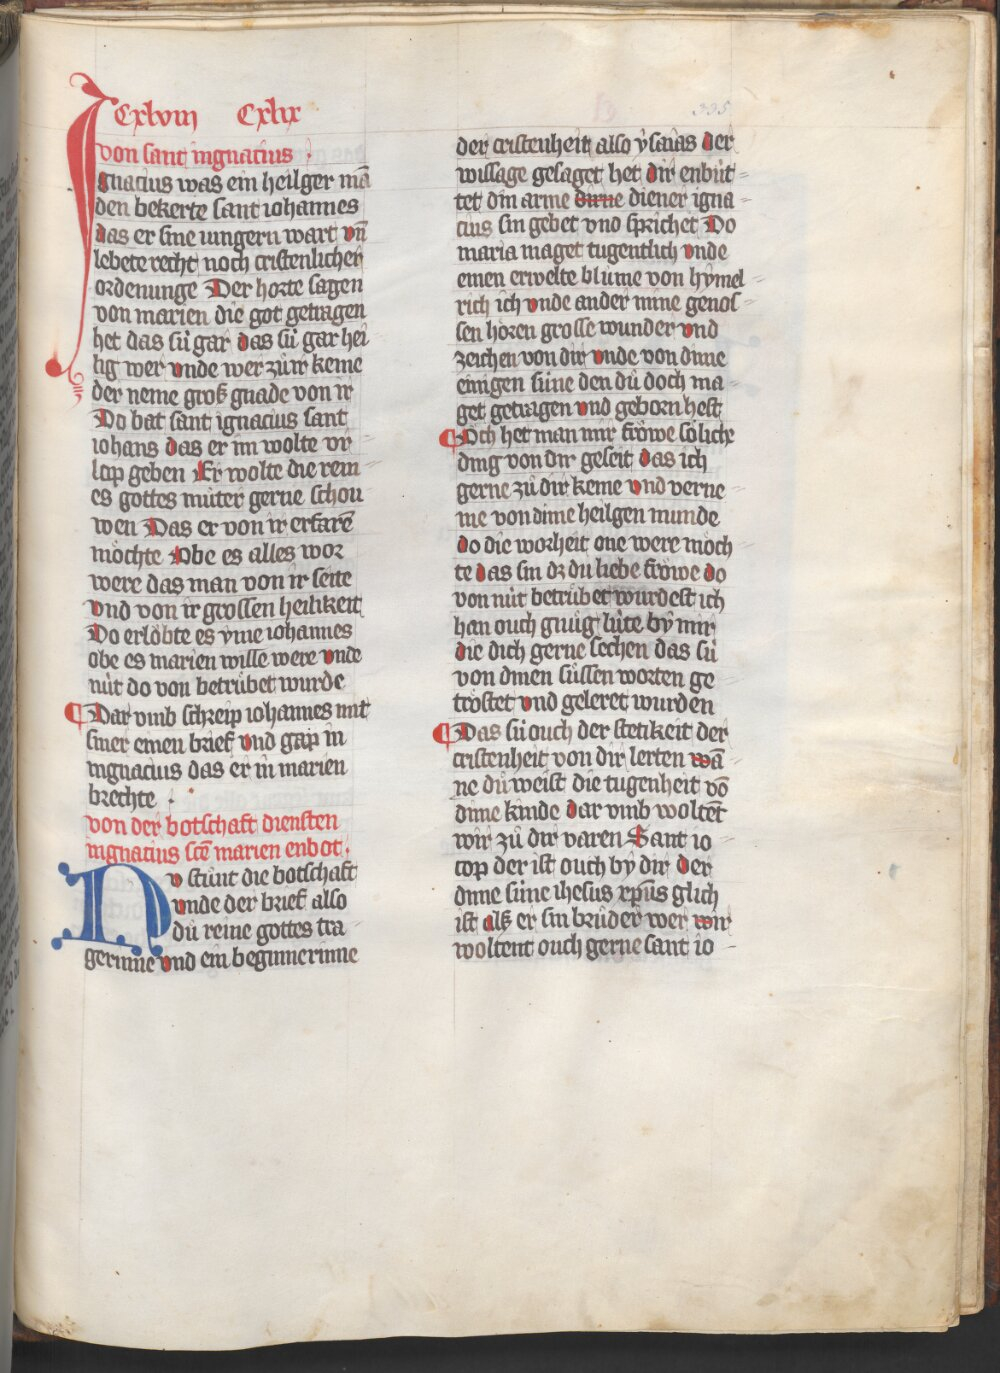 Cxlviii Cxlix
335
von sant ingnacius .
Ignacius was ein heilger mā
den bekerte sant iohannes
das er sine iungern wart vn̄
lebete recht noch cristenlicher
ordenunge Der horte sagen
von marien die got getragen
het das sü gar das sü gar hei
lig wer vnde wer zů ir keme
der neme groß gnade von ir
Do bat sant ignacius sant
iohans das er im wolte vr
lop geben Er wolte die rein
es gottes můter gerne schou
wen Das er von ir erfarē
möchte Obe es alles wor
were das man von ir seite
vnd von ir grossen heilikeit
Do erlöbte es yme iohannes
obe es marien wille were vnde
nüt do von betrübet wurde
Dar vmb schreip iohannes mit
siner einen brief vnd gap in
ingnacius das er in marien
brechte .
von der botschaft diensten
ingnatius scē marien enbot.
Nv stůnt die botschaft
vnde der brief also
dů reine gottes tra
gerinne vnd ein beginnerinne
der cristenheit also ysaias der
wissage gesaget het dir enbüt
tet din arme dirne diener igna
cius sin gebet vnd sprichet Do
maria maget tugentlich vnde
einen erwelte blůme von hymel
rich ich vnde ander mine genos
sen hören grosse wunder vnd
zeichen von dir vnde von dinne
einigen süne den dů doch ma
get getragen vnd geborn hest
Och het man mir fröwe söliche
ding von dir geseit das ich
gerne zů dir keme vnd verne
me von dinne heilgen munde
do die worheit one were möch
te das sin dz du liebe fröwe do
von nüt betrübet wurdest ich
han ouch gnůg lüte by mir
die dich gerne sechen das sü
von dinen süssen worten ge
tröstet vnd geleret wurden
Das sü ouch der stetikeit der
cristenheit von dir lerten wā
ne dů weist die tugenheit vō
dinne kinde dar vmb woltēt
wir zů dir varen Sant io
cop der ist ouch by dir der
dinne süne ihesus xp̄us glich
ist alß er sin brůder wer wir
woltent ouch gerne sant io